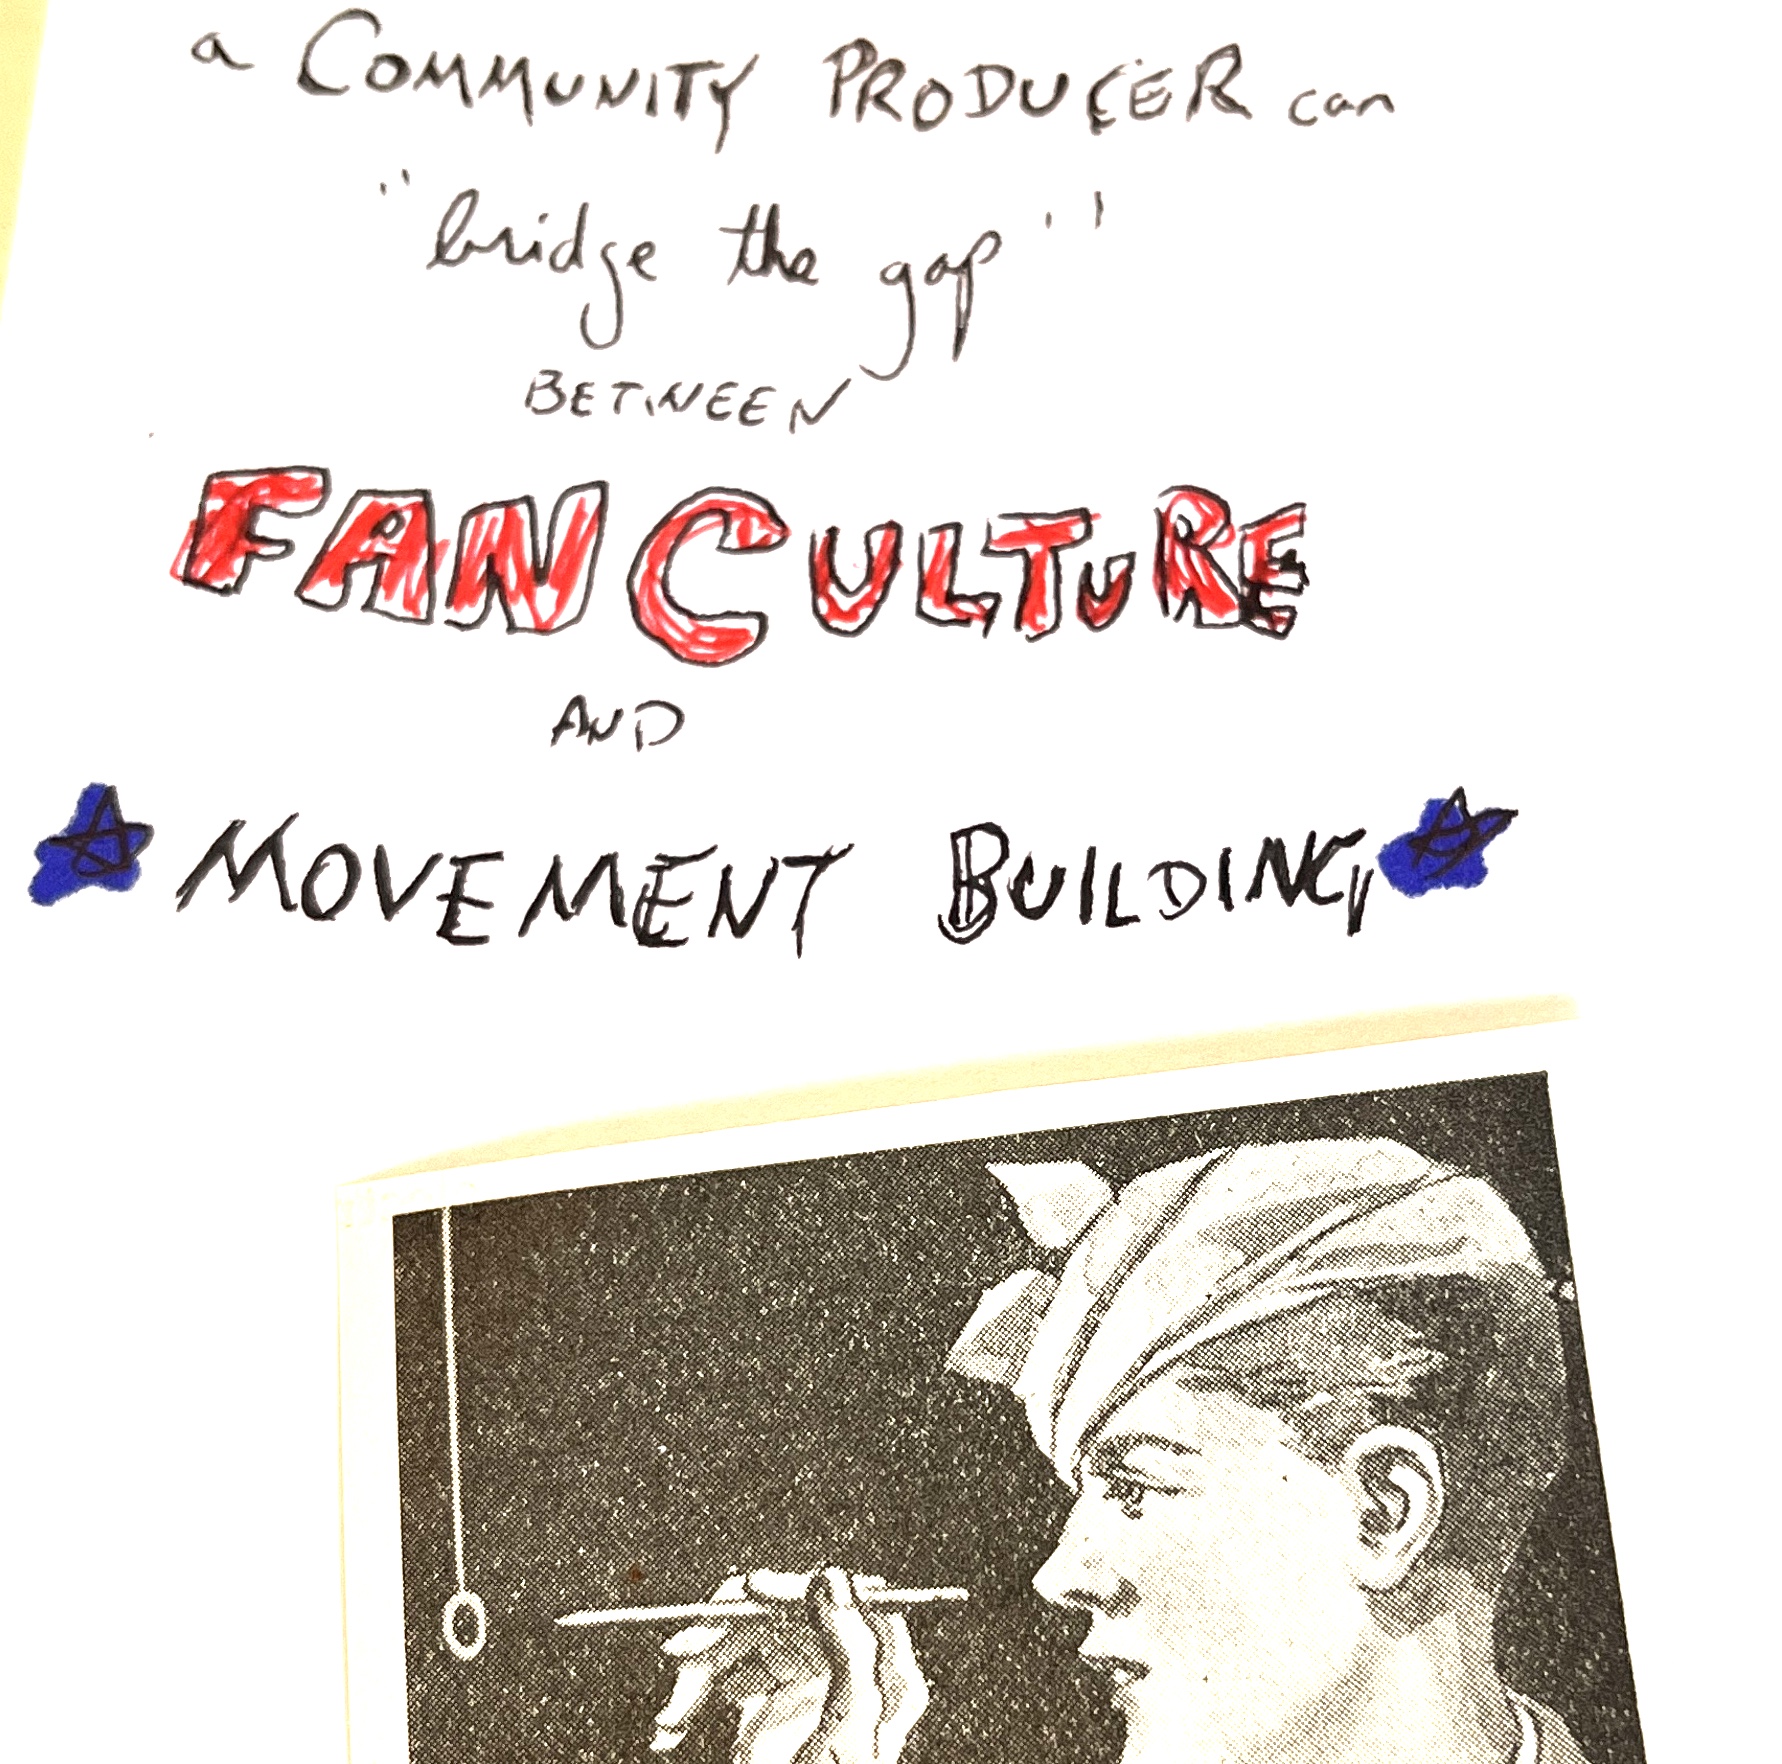 a COMMUNITY PRODUCER can
"bridge the gap"
BETWEEN
FAN CULTURE
AND
MOVEMENT BUILDING